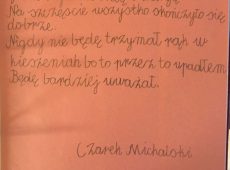 Na szczęście wszystko skończyło się
dobrze.
Nigdy nie będę trzymał rąk w
kieszeniach bo to przez to upadłem.
Będę bardziej uważał.
Czarek Michalski